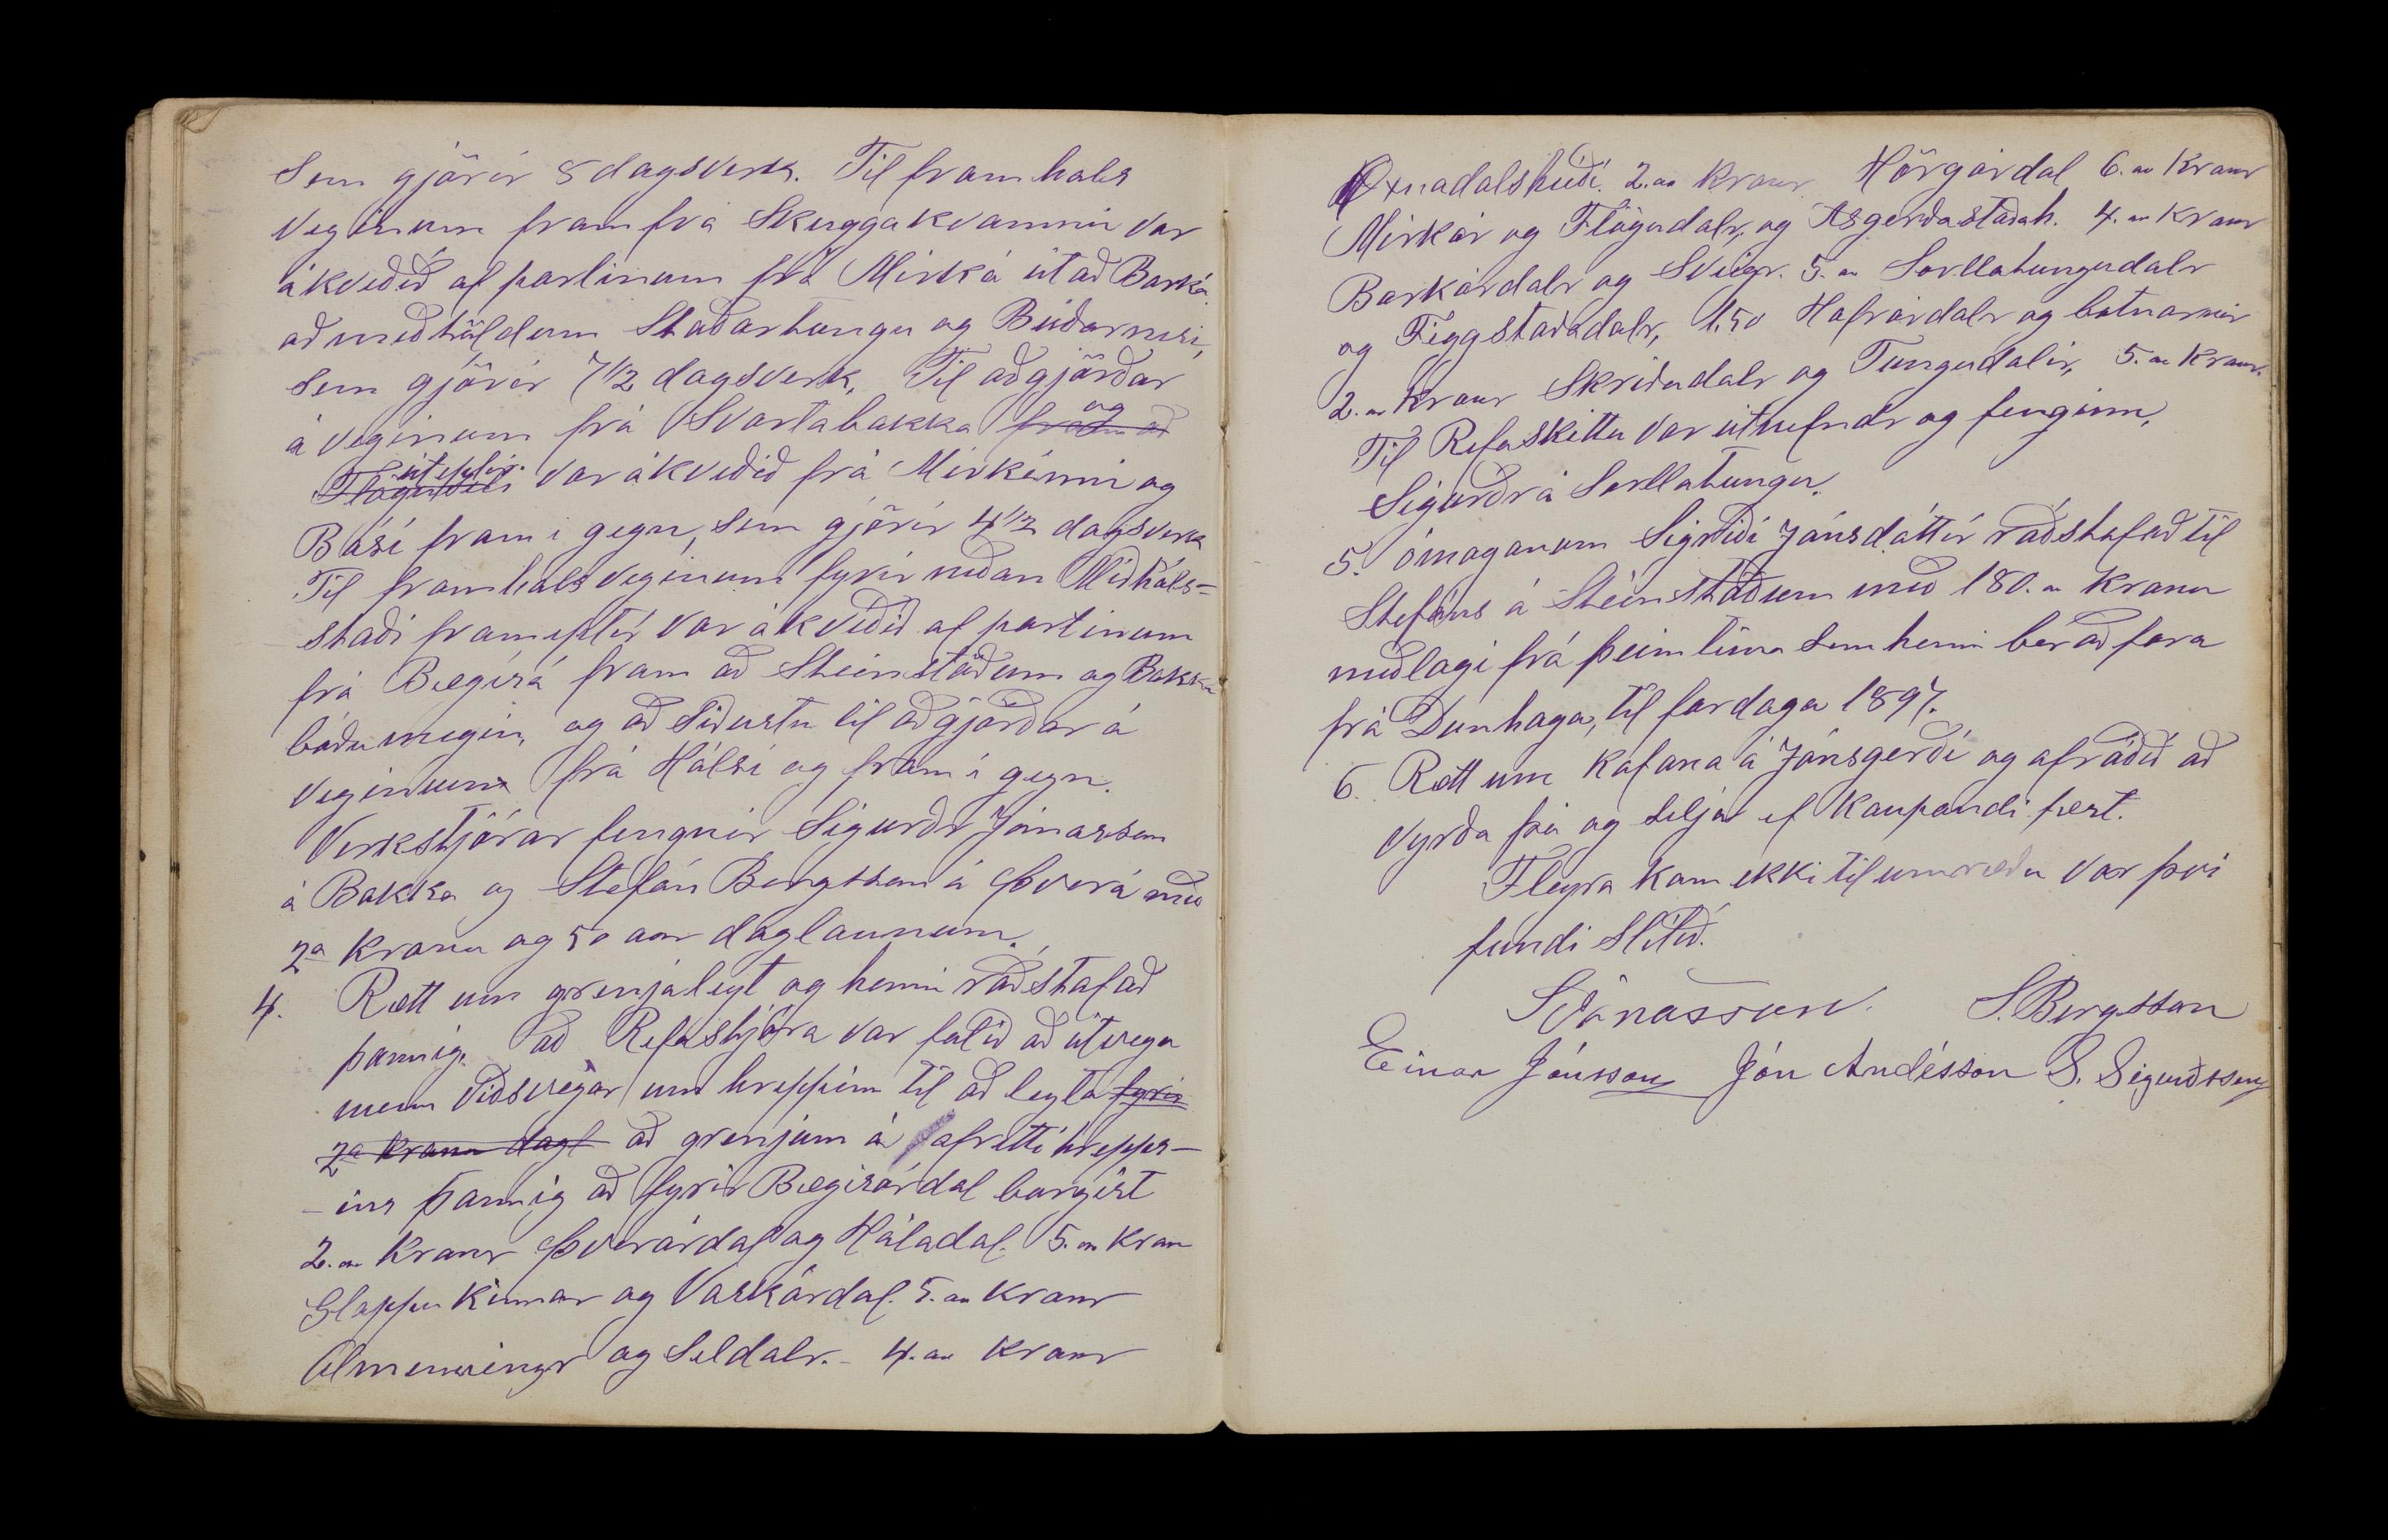 sem gjörir 8 dagsverk. Til framhals
veginum fram frá Skuggakvammi var
ákveðið af partinum frá Mirká út að Barká
að meðtöldum Staðartungu og Búðarnesi,
sem gjörir 7 1/2 dagsverk. Til aðgjörðar
á veginum frá Svartabakka fram að og
Flöguseli út eptir var ákveðið frá Mirkánni og
Bási fram í gegn, sem gjörir 4 1/2 dagsverk
Til framhals veginum fyrir neðan Miðháls=
staði fram eptir var ákveðið af partinum
frá Bægisá fram að Steinstöðum og Bakka
báðumegin, og að síðustu til aðgjörðar á
veginum frá Hálsi og fram í gegn.
Verkstjórar fengnir Sigurðr Jónasson
á Bakka og Stefán Bergsson á Þverá með
2a króna og 50 aur daglaunum.
4. Rætt um grenjaleyt og henni ráðstafað
þannig. að Refastjóra var falið að útvega
menn viðsvegar um hreppinn til að leyta fyrir
2a króna dagl að grenjum á afrétti hrepps-
-ins þannig að fyrir Bægisárdal borgist
2.a Krónr Þverárdal og Háladal. 5.a Krón
Glappukinnar og Vaskárdal. 5.a Krónr
Almenningr og Seldalr. - 4.a Krónr
Öxnadalsheiði. 2.a Krónr Hörgárdal 6.a Krónr
Mirkár og Flögudalr, og Ásgerðastaðah. 4.a Krónr
Barkárdalr og Sveigr. 5.a Sörllatungudalr
og Féeggstaðadalr, 1,50 Hafrárdalr og botnarnir
2.a Krónr Skriðudalr og Tungudalir, 5.a Krónr.
Til Refaskittu var útnefndr og fenginn,
Sigurðr á Sörllatungu.
5. ómaganum Sigríði Jónsdóttir ráðstafað til
Stefáns á Steinstöðum með 180.a króna
meðlagi frá þeim tíma sem henni ber að fara
frá Dunhaga, til fardaga 1897.
6. Rætt um kofana á Jónsgerði og afráðið að
vyrða þá og selja ef kaupandi fæst.
Fleyra kom ekki til umræðu var því
fundi slitið.
S Jónasson. S. Bergsson
Einar Jónsson Jón Andésson S. Sigurðsson